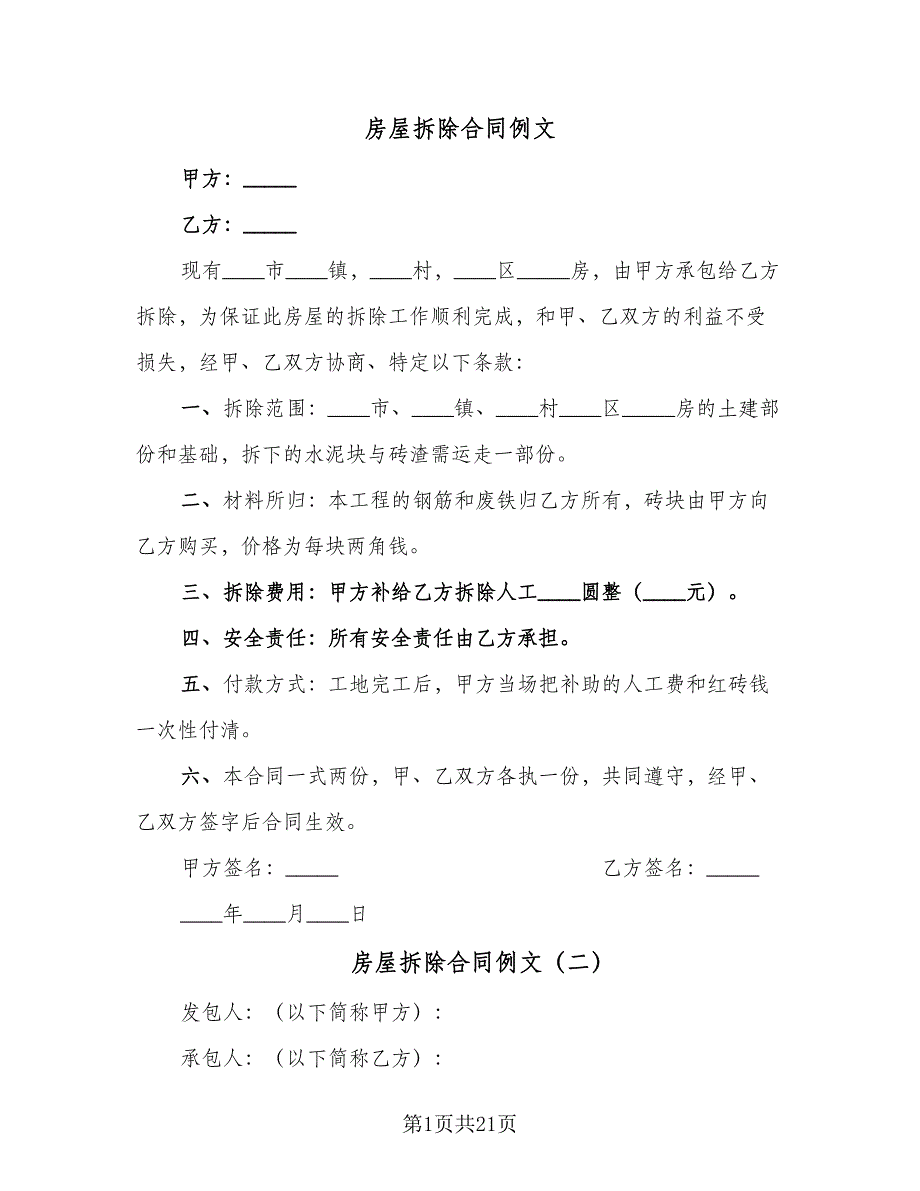 房屋拆除合同例文
甲方：_____
乙方：_____
现有____市____镇，____村，____区_____房，由甲方承包给乙方
拆除，为保证此房屋的拆除工作顺利完成，和甲、乙双方的利益不受
损失，经甲、乙双方协商、特定以下条款：
一、拆除范围：____市、____镇、____村____区_____房的土建部
份和基础，拆下的水泥块与砖渣需运走一部份。
二、材料所归：本工程的钢筋和废铁归乙方所有，砖块由甲方向
乙方购买，价格为每块两角钱。
三、拆除费用：甲方补给乙方拆除人工____圆整（____元）。
四、安全责任：所有安全责任由乙方承担。
五、付款方式：工地完工后，甲方当场把补助的人工费和红砖钱
一次性付清。
六、本合同一式两份，甲、乙双方各执一份，共同遵守，经甲、
乙双方签字后合同生效。
甲方签名：_____ 乙方签名：_____
____年____月____日
房屋拆除合同例文（二）
发包人：（以下简称甲方）：
承包人：（以下简称乙方）：
第1页共21页